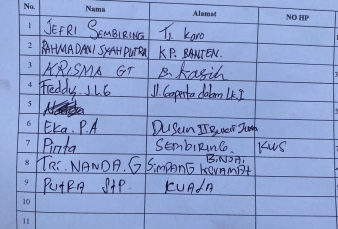 No. Nama Alamat NO HP
1 JEFRI SEMBIRING Tj. Karo
2 RAHMADANI SYAHPUTRA KP. BANTEN.
3 KRISMA GT B. Kasih
4 Freddy. J.L.G Jl. Gaperta dalam Lk.I
5
6 Eka. P.A Dusun II
7 Pinta SEMBIRING. KWS
8 TRI. NANDA. G SIMPANG BINJAI
9 PUTRA STP. KUALA
10
11